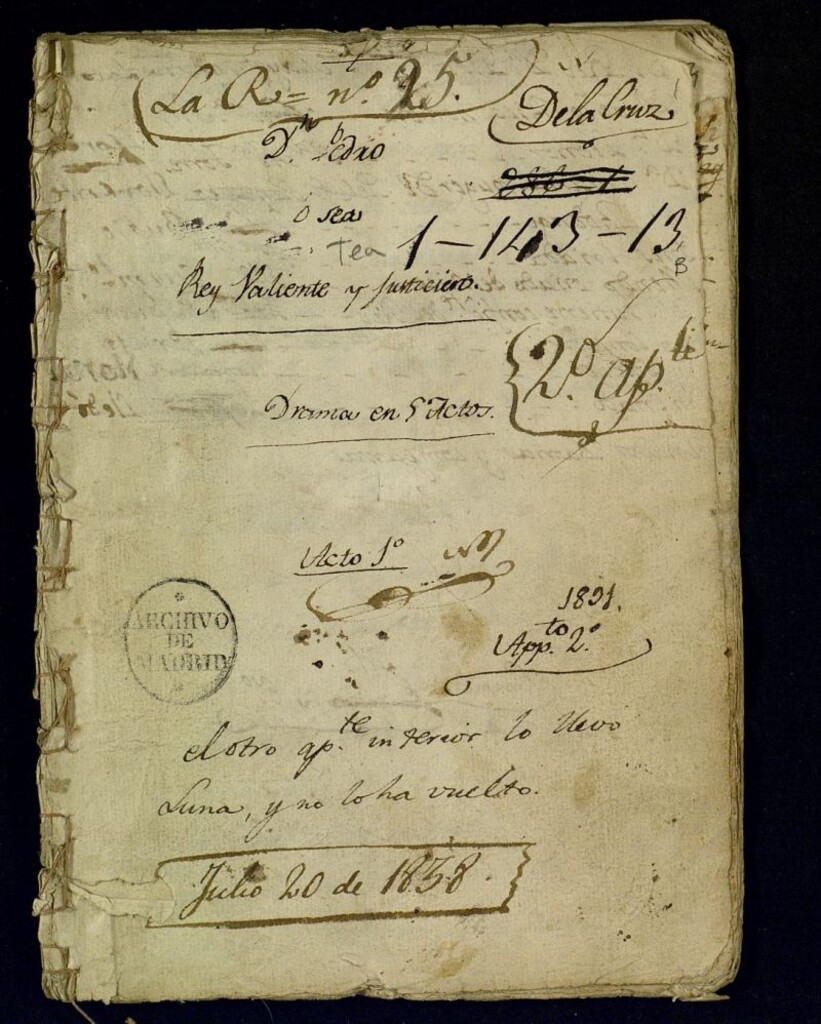 La R= nº 25.
De la Cruz
Dn Pedro
ó sea
Tea 1-143-13
B
Rey Valiente y Justiciero.
2º apte
Drama en 5 Actos.
Acto 1º
ARCHIVO
DE
MADRID
Appto 2º
el otro apte interior lo llevo
Luna, y no lo ha vuelto.
Julio 20 de 1838